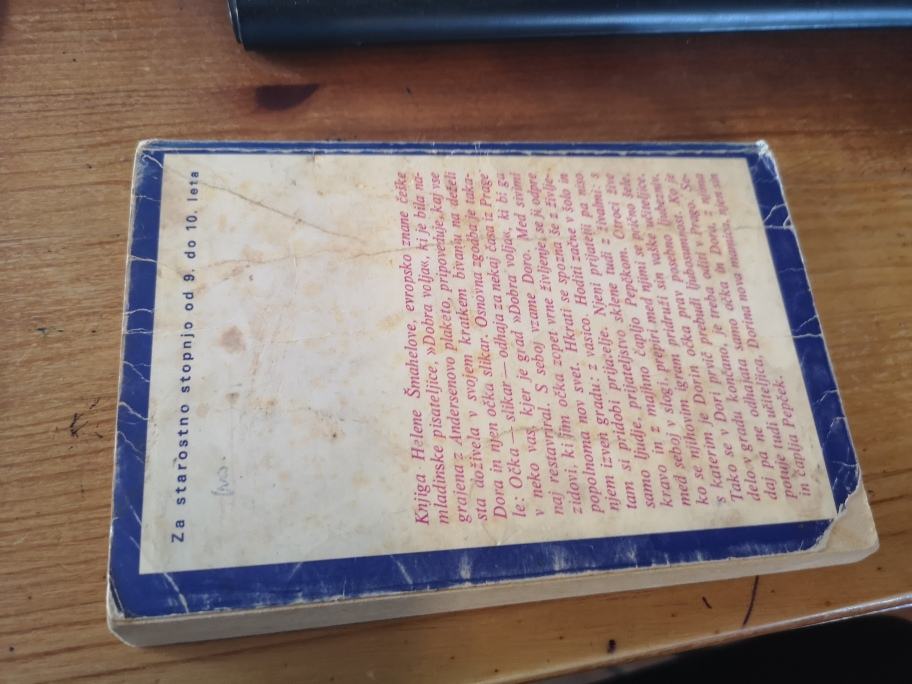 Za starostno stopnjo od 9. do 10. leta
Knjiga Helene Šmahelove, evropsko znane češke
mladinske pisateljice, »Dobra volja«, ki je bila na-
grajena z Andersenovo plaketo, pripoveduje, kaj vse
sta doživela v svojem kratkem bivanju na deželi
Dora in njen očka slikar. Osnovna zgodba je taka-
le: Očka — slikar — odhaja za nekaj časa iz Prage
v neko vas, kjer je grad »Dobra volja«, ki bi ga
naj restavriral. S seboj vzame Doro. Med sivimi
zidovi, ki jim očka zoper vrne življenje, se ji odpre
popolnoma nov svet. Hkrati se spozna še z življe-
njem izven gradu: z vasico. Hoditi začne v šolo in
tam si pridobi prijatelje. Njeni prijatelji pa niso
samo ljudje, prijateljstvo sklene tudi z živalmi: s
kravo in z majhno čapljo Pepčkom. Otroci žive
med seboj v slogi, prepiri med njimi se redno zgla-
ko se njihovim igram pridruži sin vaške učiteljice,
s katerim je Dorin očka prav posebno ljubezniv.
Tako se v Dori prvič prebudi ljubosumnost. Ko je
delo v gradu končano, je treba oditi v Prago. Se-
daj pa ne odhajeta samo očka in Dora, z njima
potuje tudi učiteljica, Dorina nova mamica, njen sin
in čaplja Pepček.